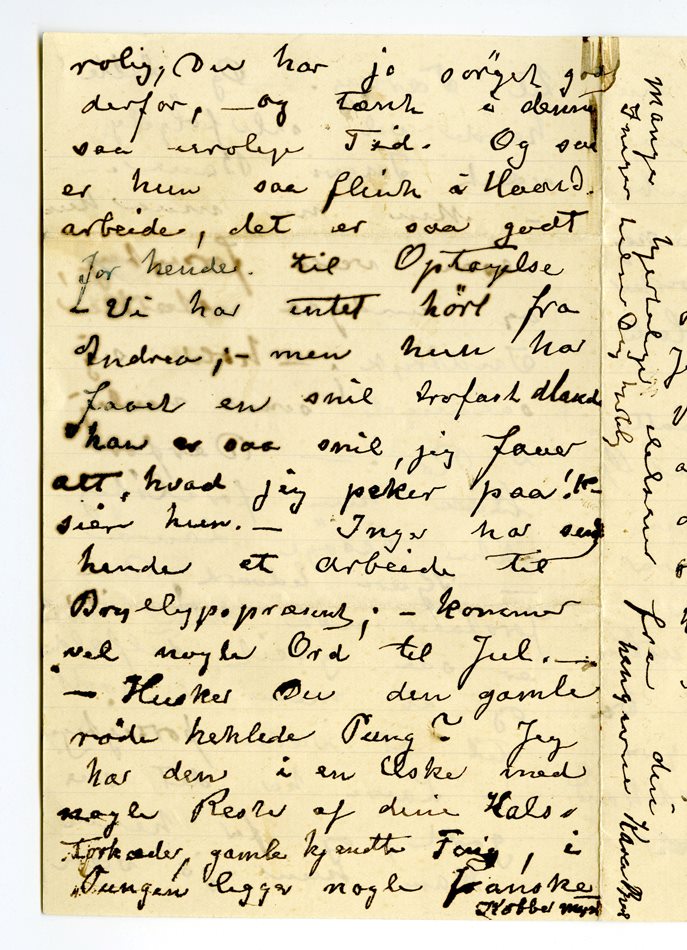 rolig, Du har jo sörget god
derfor, – og tænk i denne
saa urolige Tid. Og saa
er hun saa flink i Haand-
arbeide, det er saa godt
for hende. til Optagelse
– Vi har intet hört fra
Andrea, – men hun har
faaet en snil trofast Mand
"han er saa snil, jeg faaer
alt, hvad jeg peker paa!"
sier hun. – Inga har send
hende et arbeide til
Bryllypspræsent; – kommer
vel nogle Ord til Jul. –
– Husker Du den gamle
röde heklede Pung? Jeg
har den i en Æske med
nogle Rester af dine Hals-
Törkæder, gamle kjendte Töig, i
Pungen ligger nogle franske
Kobber mynt
Mange hjertelige hilsener fra din
Inga hilser Dig hengivne